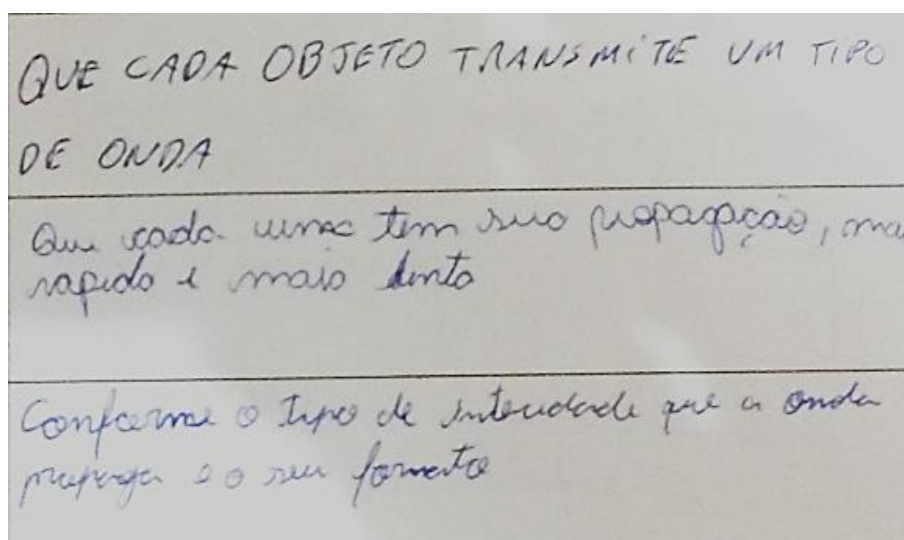 QUE CADA OBJETO TRANSMITE UM TIPO
DE ONDA
Que cada uma tem sua propagação, mai
rapido e mais lento
Conforme o tipo de intecidade que a onda
propaga e o seu formato